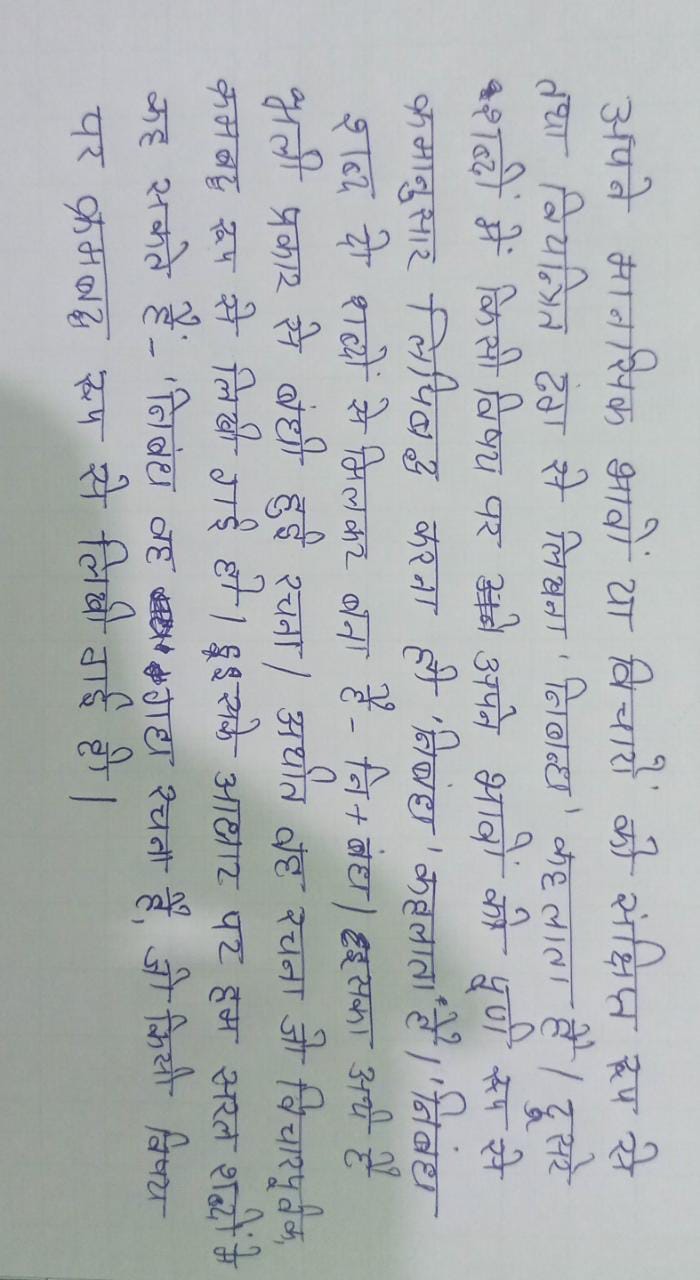 अपने मानसिक भावों या विचारों को संक्षिप्त रूप से
तथा नियन्त्रित ढंग से लिखना 'निबन्ध' कहलाता है। दूसरे
शब्दों में किसी विषय पर अपने भावों को पूर्ण रूप से
क्रमानुसार लिपिबद्ध करना ही 'निबंध' कहलाता है। 'निबंध
शब्द दो शब्दों से मिलकर बना है - नि + बंध। इसका अर्थ है
भली प्रकार से बंधी हुई रचना। अर्थात वह रचना जो विचारपूर्वक,
क्रमबद्ध रूप से लिखी गई हो। इसके आधार पर हम सरल शब्दों में
कह सकते हैं - 'निबंध वह गद्य रचना है, जो किसी विषय
पर क्रमबद्ध रूप से लिखी गई हो।